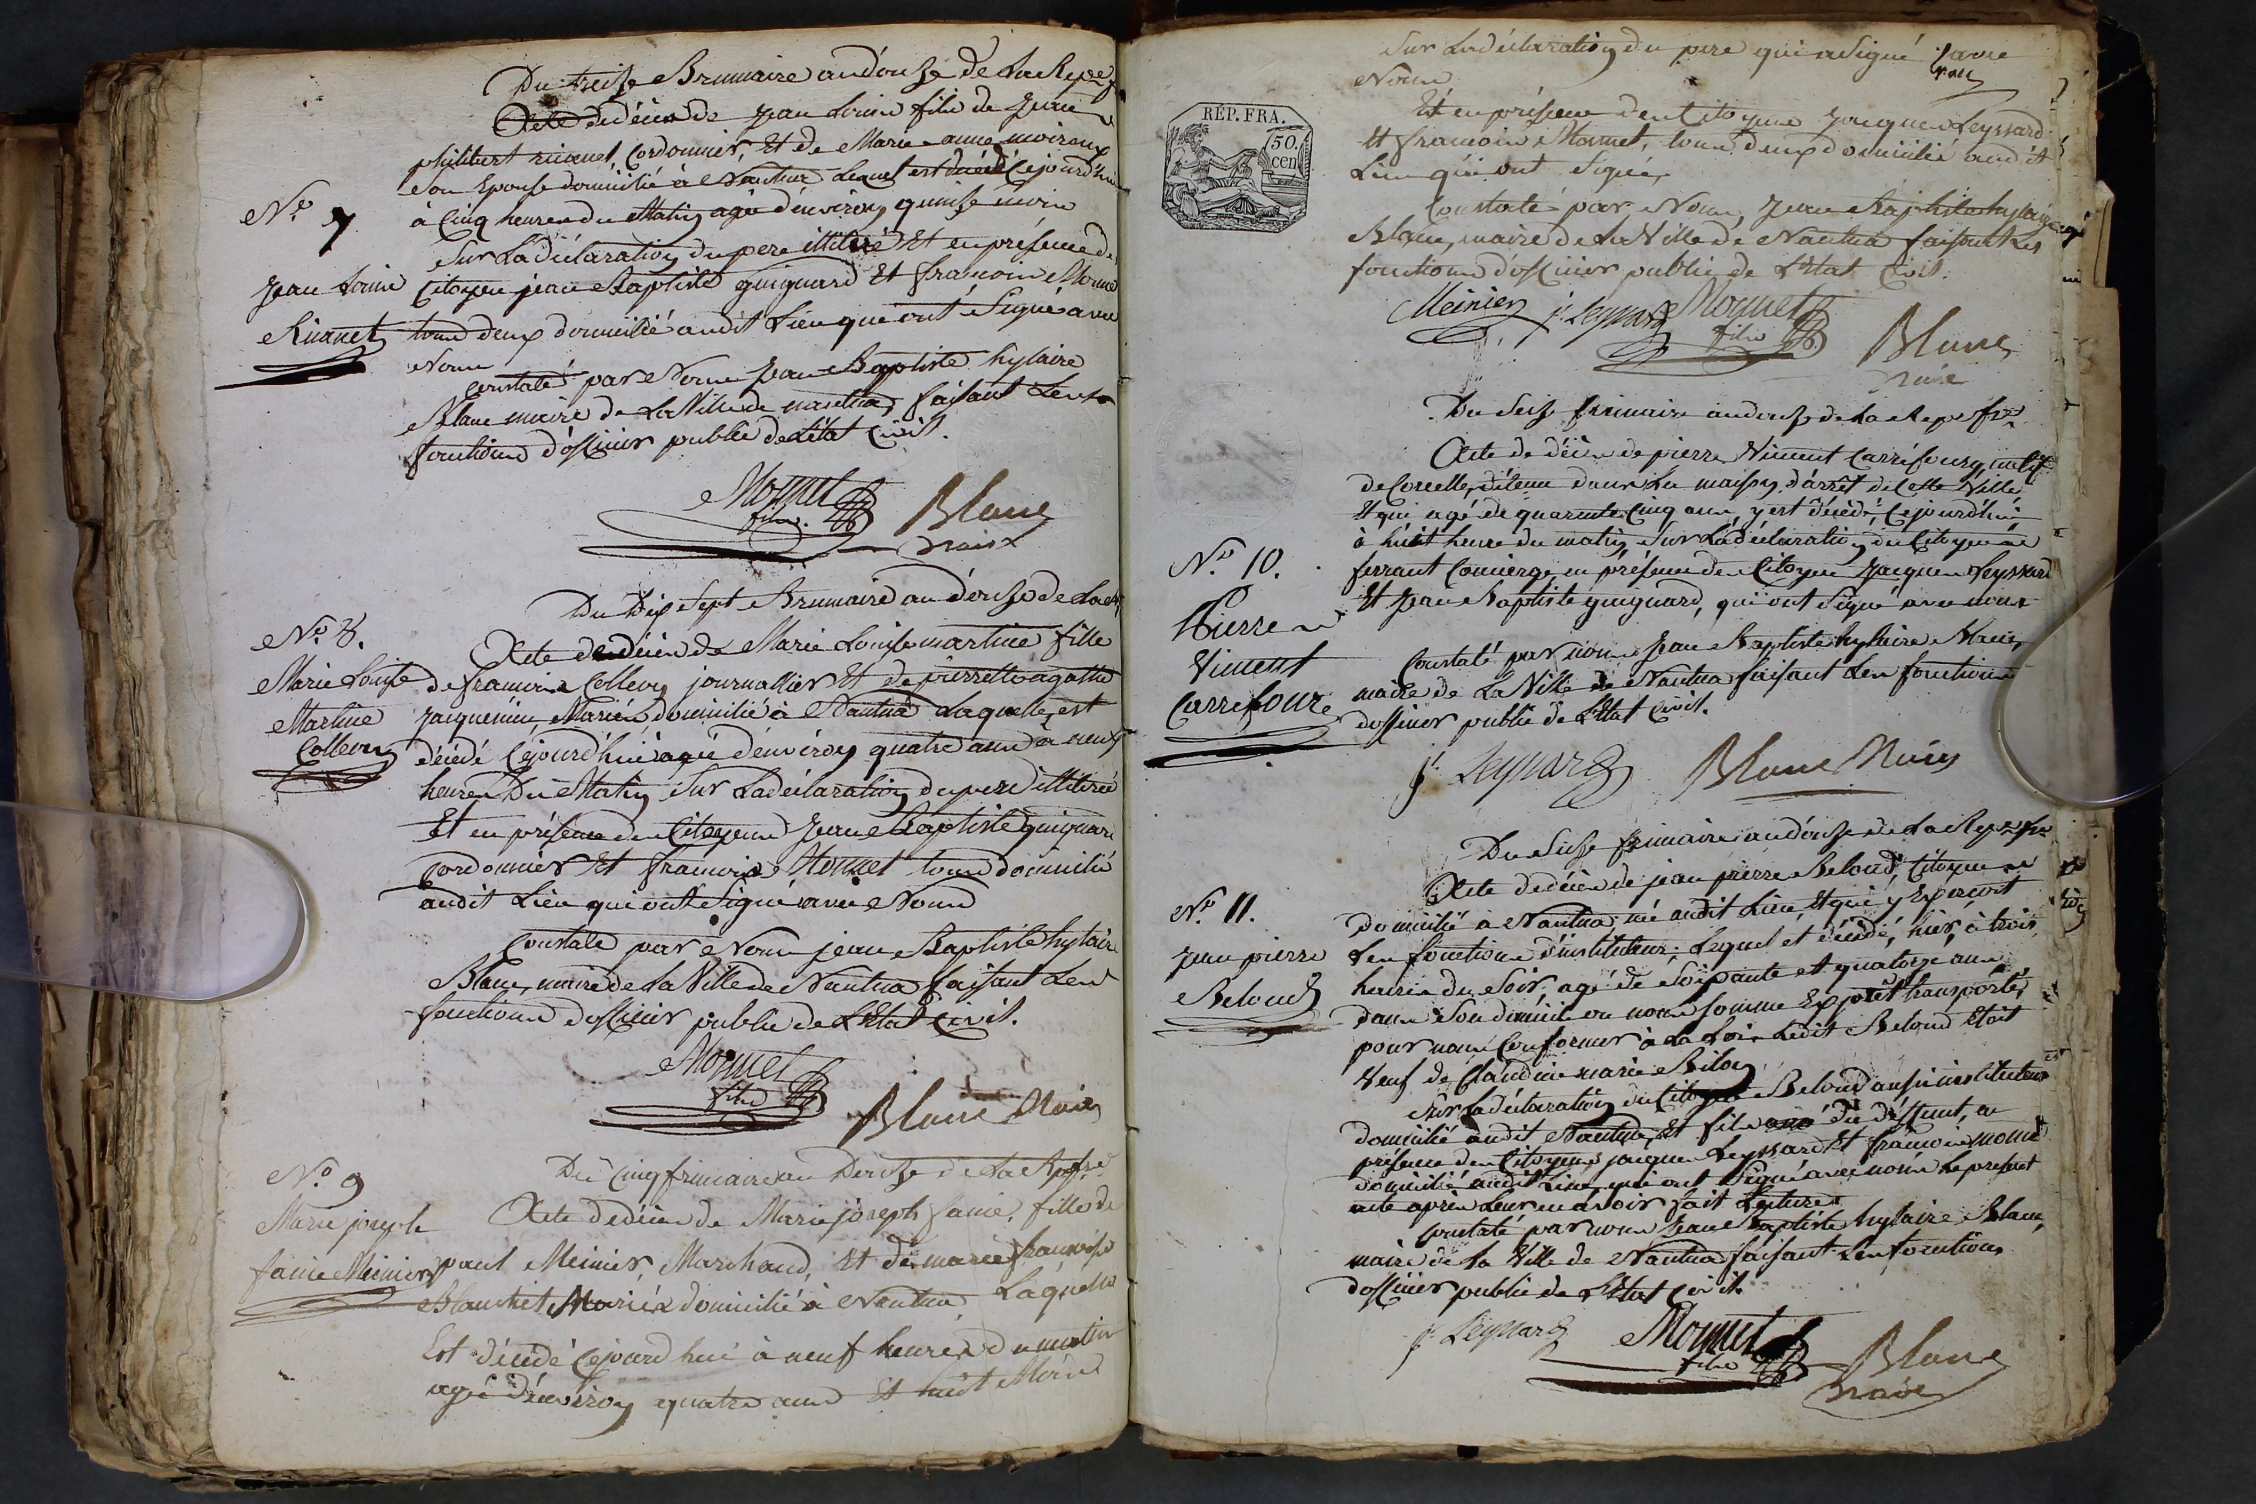 Du treize Brumaire an douze de La Rep.
Acte de décès de Jean Louis fils de Jean
philibert ruanet, Cordonnier, Et de Marie anne moiroux
son Epouse domicilié à Nantua Lequel est décédé Cejourd'hui
à Cinq heures du Matin agé d'environ quinse mois
Sur La déclaration du pere illitéré Et en présence de
Citoyen jean Baptiste guignard Et francois Monnet
tous deux domicilié audit Lieu qui ont Signé avec
Nous
Constaté par Nous Jean Baptiste hylaire
Blanc maire de La Ville de nantua, faisant Les
fonctions d'officier public de L'état Civil.
N.º 7
Jean Louis
Ruanet
Monnet
fils
Blanc
maire
Du Dix Sept Brumaire an douze de La
N.º 8.
Marie Louise
Martine
Collevet
Acte de décès de Marie Louise martine fille
de francois Collevet journallier Et de pierrette agathe
Jacquemin, Mariés domicilié à Nantua Laquelle est
décédé Cejourd'hui agé d'environ quatre ans à neuf
heures Du Matin Sur La déclaration du pere illitéré
Et en présence des Citoyens Jean Baptiste guignard
Cordonnier Et francois Monnet tous domicilié
audit Lieu qui ont Signé avec Nous
Constaté par Nous jean Baptiste hylaire
Blanc, maire de La Ville de Nantua faisant Les
fonctions d'officier public de L'Etat Civil.
Monnet
fils
Blanc Maire
N.º 9
Marie joseph
fanie Meinier
Du Cinq frimaire an Douze de La Rep. fr.
Acte de décès de Marie joseph fanie, fille de
paul Meinier, Marchand, Et de marie françoise
Blanchet Mariés domicilié à Nantua Laquelle
Est décédé Cejourd'hui à neuf heures du matin
agé d'environ quatre ans Et huit Mois
Sur La déclaration du pere qui a Signé avec
Nous
Et en présence des Citoyens Jacques Leyssard
Et francois Monnet, tous deux domicilié audit
Lieu qui ont Signé,
RÉP. FRA.
50.
cen
Constaté par Nous, Jean Baptiste hylaire
Blanc, maire de La Ville de Nantua faisant Les
fonctions d'officier public de L'Etat Civil.
Meinier j. Leyssard Monnet
fils
Blanc
maire
Du Seize frimaire an douze de La Rep. fr.
N.º 10.
Pierre
Viment
Carrefour
Acte de décès de pierre Viment Carrefour, natif
de Corcelle, détenu dans La maison d'arrêt de Cette Ville,
Et qui agé de quarante Cinq ans, y est décédé, Cejourd'hui
à huit heures du matin Sur La déclaration du Citoyen
ferrant Concierge en présence des Citoyens Jacques Leyssard
Et Jean Baptiste guignard, qui ont Signé avec nous
Constaté par nous Jean Baptiste hylaire Blanc,
maire de La Ville de Nantua faisant Les fonctions
d'officier public de L'Etat Civil.
j. Leyssard Blanc Maire
Du Seize frimaire an douze de La Rep. fr.
N.º 11.
Jean pierre
Beloud
Acte de décès de jean pierre Beloud, Citoyen
domicilié à Nantua, né audit Lieu, Et qui y Exerçoit
Les fonctions d'instituteur; Lequel est décédé, hier, à trois
heures du Soir, agé de Soixante et quatorze ans
dans Son domicile ou nous sommes Exprêt transporté,
pour nous Conformer à La Loi. Ledit Beloud Etoit
Veuf de Claudine marie Billon
Sur La déclaration du Citoyen Beloud aussi instituteur
domicilié audit Nantua, Et fils du déffunt, en
présence des Citoyens jacques Leyssard Et francois monnet
domicilié audit Lieu, qui ont Signé avec nous Le présent
acte après Leur en avoir fait Lecture
Constaté par nous Jean Baptiste hylaire Blanc,
maire de La Ville de Nantua faisant Les fonctions
d'officier public de L'Etat Civil.
j. Leyssard Monnet
fils
Blanc
maire